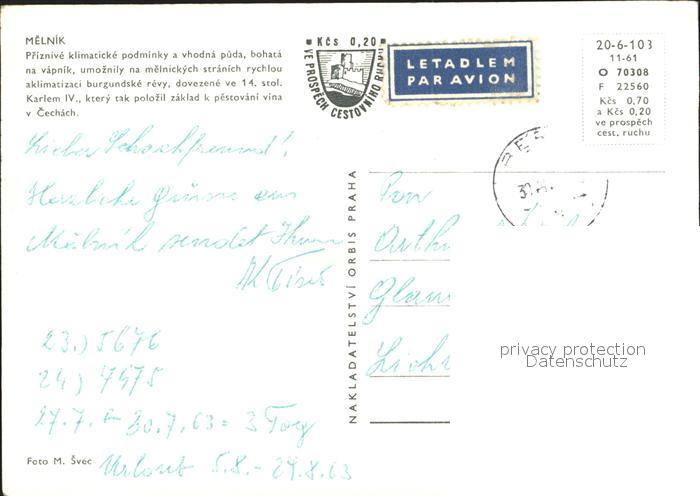 MĚLNÍK
Příznivé klimatické podmínky a vhodná půda, bohatá
na vápník, umožnily na mělnických stráních rychlou
aklimatizaci burgundské révy, dovezené ve 14. stol.
Karlem IV., který tak položil základ k pěstování vína
v Čechách.
Kčs 0,20
VE PROSPĚCH CESTOVNÍHO RUCHU
LETADLEM
PAR AVION
20-6-103
11-61
O 70308
F 22560
Kčs 0,70
a Kčs 0,20
ve prospěch
cest. ruchu
Lieber Schachfreund!
Herzliche Grüsse aus
Mělník sendet Ihnen
23.) 5676
24.) 7475
27.7. - 30.7.63 = 3 Tag
Urlaub 5.8. - 24.8.63
Foto M. Švec
NAKLADATELSTVÍ ORBIS PRAHA
Pan
privacy protection
Datenschutz